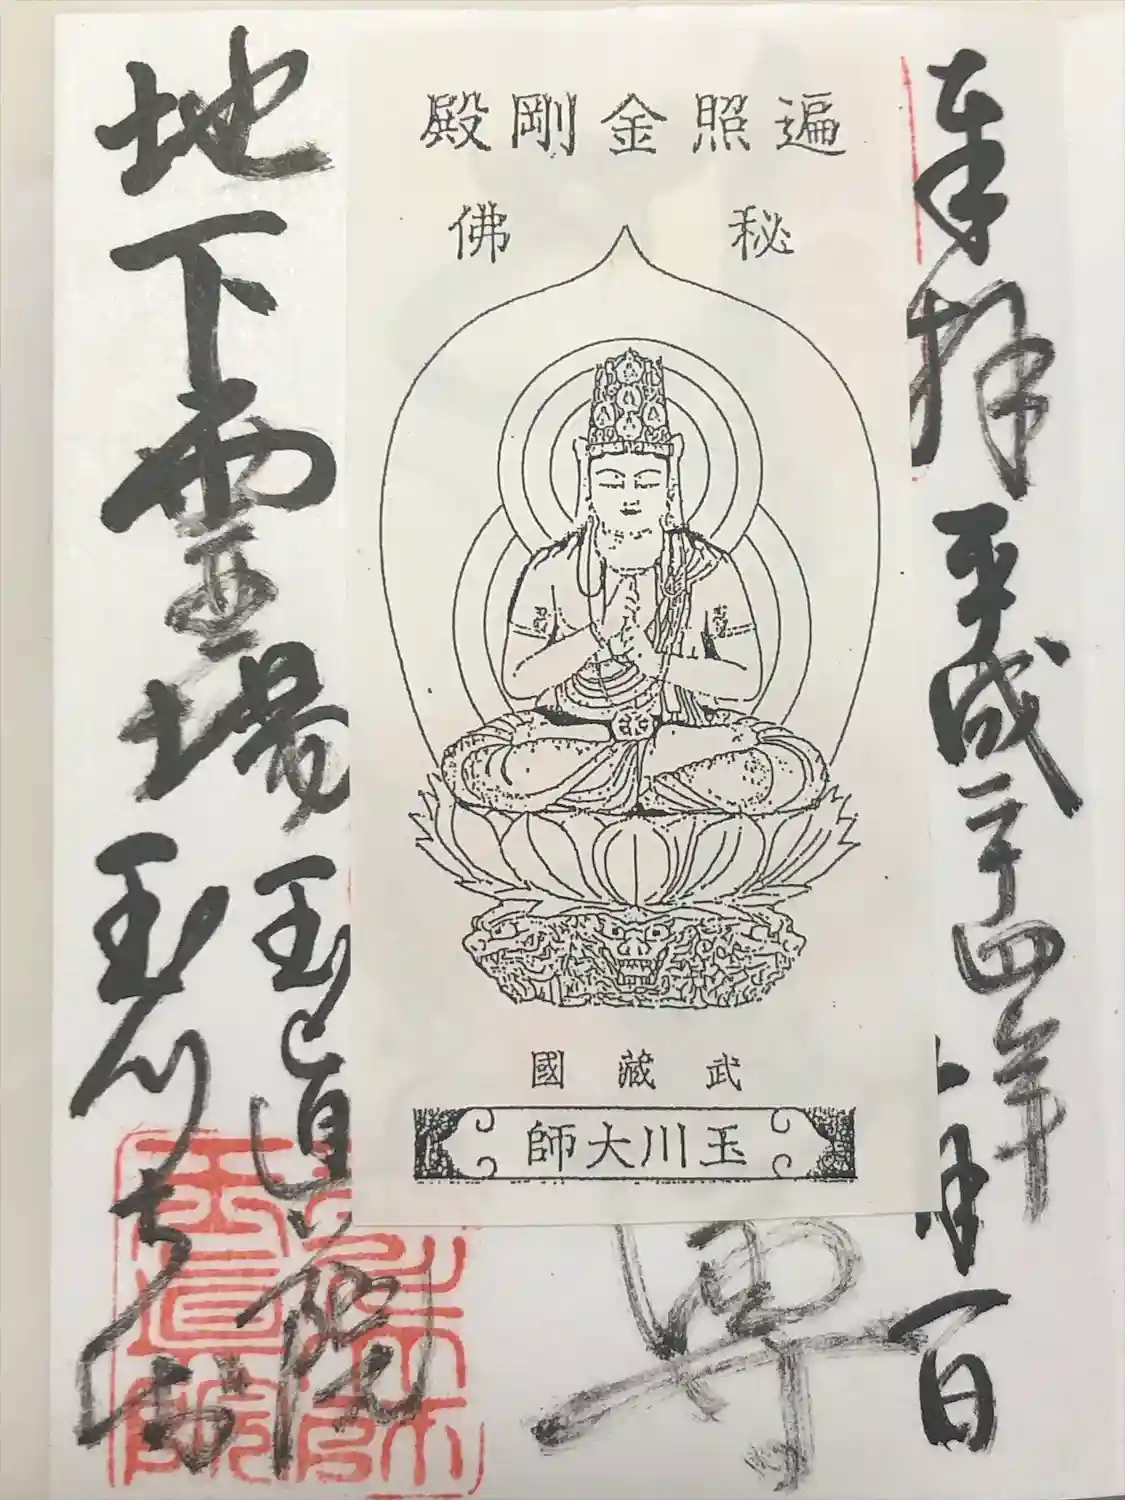 奉拝 平成二十四年 月一日
遍照金剛殿
秘佛
武藏國
玉川大師
尊
地下霊場 玉眞院
玉川大師